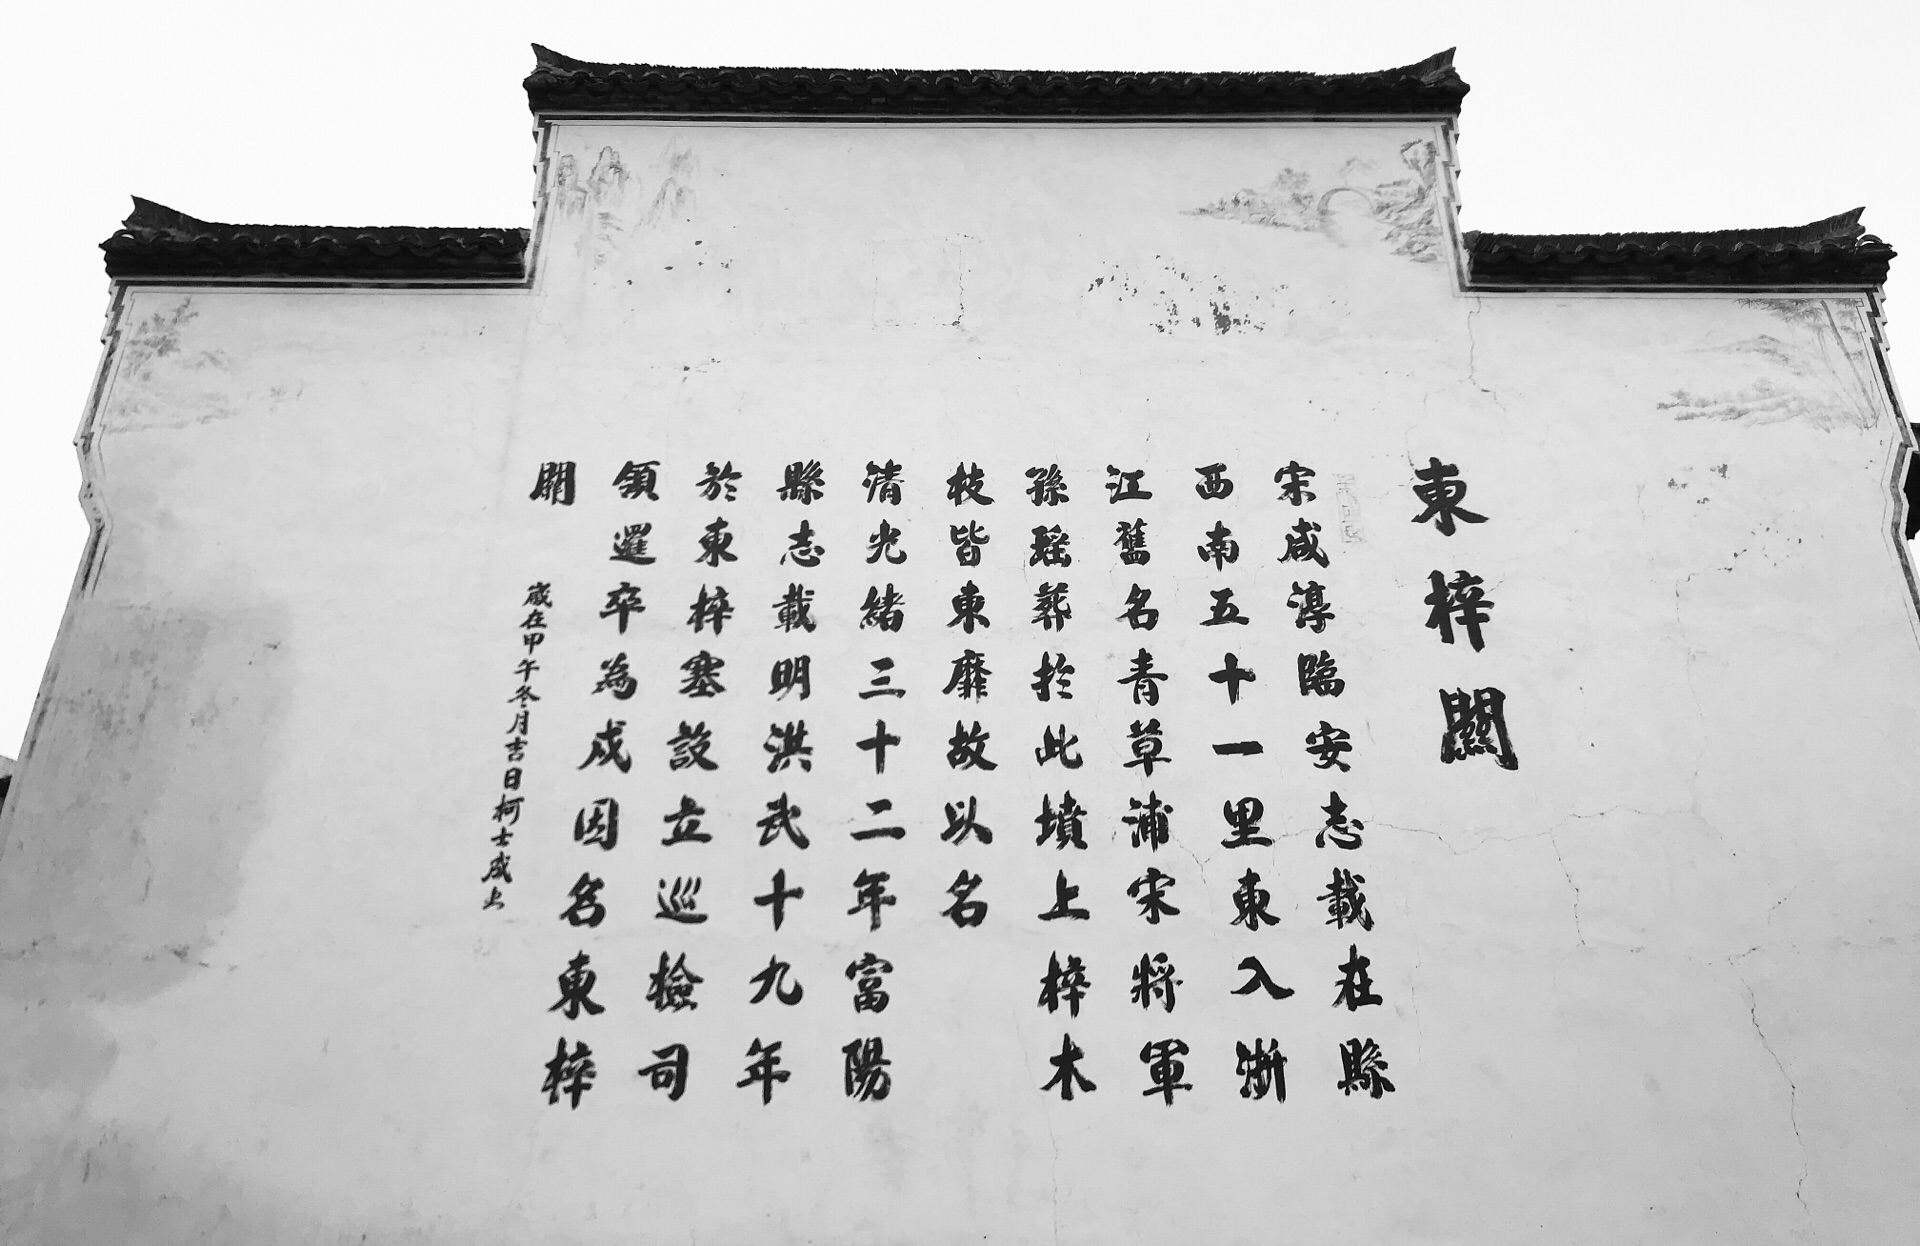 東梓關
宋咸淳臨安志載在縣
西南五十一里東入浙
江舊名青草浦宋將軍
孫瑶葬於此墳上梓木
枝皆東靡故以名
清光緒三十二年富陽
縣志載明洪武十九年
於東梓塞設立巡檢司
領邏卒為戍因名東梓
關
嵗在甲午冬月吉日柯士成上